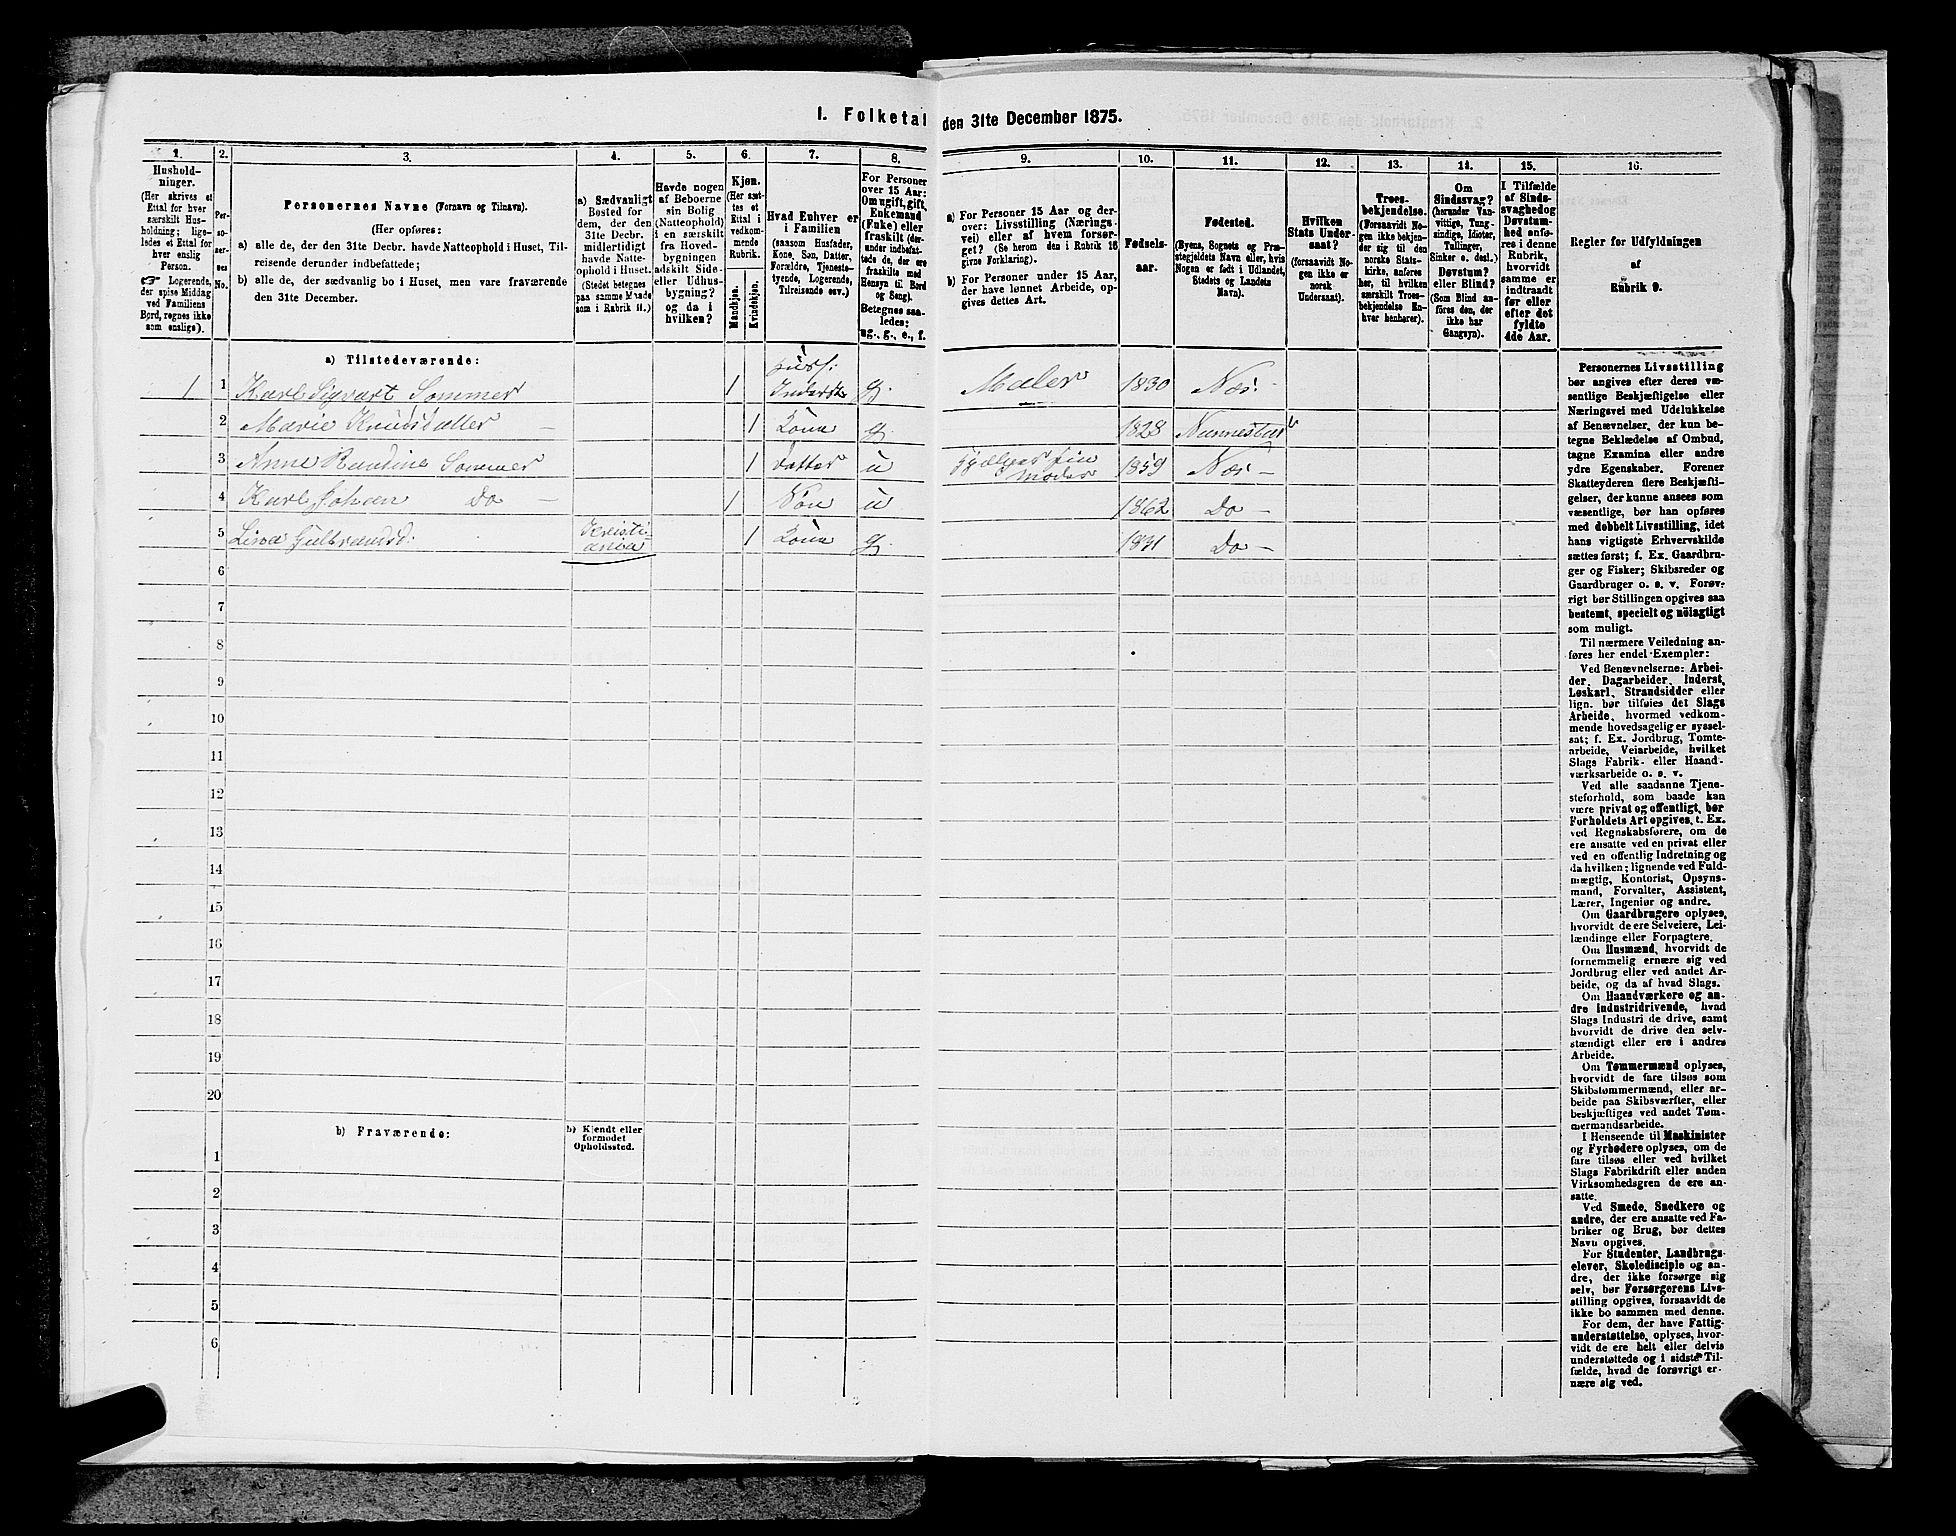 1. Folketal den 31te December 1875.
1. 2. 3. 4. 5. 6. 7. 8. 9. 10. 11. 12. 13. 14. 15. 16.
Hushold-
ninger.
(Her skrives et
Ettal for hver
særskilt Hus-
holdning; lige-
ledes et Ettal for
hver enslig
Person.
☞ Logerende,
der spise Middag
ved Familiens
Bord, regnes ikke
som enslige).
Per-
so-
ner-
nes
No.
Personernes Navne (Fornavn og Tilnavn).
(Her opføres:
a) alle de, der den 31te Decbr. havde Natteophold i Huset, Til-
reisende derunder indbefattede;
b) alle de, der sædvanlig bo i Huset, men vare fraværende
den 31te December.
a) Sædvanligt
Bosted for
dem, der den
31te Decbr.
midlertidigt
havde Natte-
ophold i Huset.
(Stedet betegnes
paa samme Maade
som i Rubrik 11.)
Havde nogen
af Beboerne
sin Bolig
(Natteophold)
i en særskilt
fra Hoved-
bygningen
adskilt Side-
eller Udhus-
bygning?
og da i
hvilken?
Kjøn.
(Her sæt-
tes et
Ettal i
vedkom-
mende
Rubrik.
Mandkjøn.
Kvindekjøn.
Hvad Enhver er
i Familien
(saasom Husfader,
Kone, Søn, Datter,
Forældre, Tjeneste-
tyende, Logerende,
Tilreisende osv.)
For Personer
over 15 Aar:
Om ugift, gift,
Enkemand
(Enke) eller
fraskilt (der-
under indbefat-
tede de, der ere
fraskilte med
Hensyn til Bord
og Seng).
Betegnes saa-
ledes:
ug., g., e., f.
a) For Personer 15 Aar og der-
over: Livsstilling (Nærings-
vei) eller af hvem forsør-
get? (Se herom den i Rubrik 16
givne Forklaring).
b) For Personer under 15 Aar,
der have lønnet Arbeide, op-
gives dettes Art.
Fødsels-
aar.
Fødested.
(Byens, Sognets og Præ-
stegjeldets Navn eller, hvis
Nogen er født i Udlandet,
Stedets og Landets
Navn).
Hvilken
Stats Under-
saat?
(forsaavidt No-
gen ikke er
norsk
Undersaat).
Troes-
bekjendelse.
(Forsaavidt No-
gen ikke bekjen-
der sig til den
norske Stats-
kirke, anføres
her, til hvilken
særskilt Troes-
bekjendelse En-
hver henhører).
Om
Sindssvag?
(herunder Van-
vittige, Tung-
sindige, Idioter,
Tullinger,
Sinker o. desl.)
Døvstum?
eller Blind?
(Som Blind an-
føres den, der
ikke har
Gangsyn).
I Tilfælde
af Sinds-
svaghed og
Døvstum-
hed anfø-
res i denne
Rubrik,
hvorvidt
samme er
indtraadt
før eller
efter det
fyldte
4de Aar.
Regler før Udfyldningen
af
Rubrik 9.
a) Tilstedeværende:
1 1 Karl Sigvart Sommer 1 Husf: Inderst g. Maler 1830 Næs
2 Marie Knudsdatter 1 Kone g. 1828 Nannestad
3 Anne Randine Sommer 1 Datter u Hjælper sin Moder 1859 Næs
4 Karl Johan Do 1 Søn u 1862 Do
5 Lina Gulbrandsd: Kristi ania 1 Kone g. 1831 Do
6
7
8
9
10
11
12
13
14
15
16
17
18
19
20
b) Fraværende:
b) Kjendt eller
formodet
Opholdssted.
1
2
3
4
5
6
Personernes Livsstilling
bør angives efter deres væ-
sentlige Beskjæftigelse eller
Næringsvei med Udelukkelse
af Benævnelser, der kun be-
tegne Beklædelse af Ombud,
tagne Examina eller andre
ydre Egenskaber. Forener
Skatteyderen flere Beskjæfti-
gelser, der kunne ansees som
væsentlige, bør han opføres
med dobbelt Livsstilling, idet
hans vigtigste Erhvervskilde
sættes først; f. Ex. Gaardbru-
ger og Fisker; Skibsreder og
Gaardbruger o. s. v. Forøv-
rigt bør Stillingen opgives saa
bestemt, specielt og nöiagtigt
som muligt.
Til nærmere Veiledning an-
føres her endel Exempler:
Ved Benævnelserne: Arbei-
der, Dagarbeider, Inderst,
Løskarl, Strandsidder eller
lign. bør tilføies det Slags
Arbeide, hvormed vedkom-
mende hovedsagelig er syssel-
sat; f. Ex. Jordbrug, Tomte-
arbeide, Veiarbeide, hvilket
Slags Fabrik- eller Haand-
værksarbeide o. s. v.
Ved alle saadanne Tjene-
steforhold, som baade kan
være privat og offentligt, bør
Forholdets Art opgives, t. Ex.
ved Regnskabsførere, om de
ere ansatte ved en privat eller
ved en offentlig Indretning og
da hvilken; lignende ved Fuld-
mægtig, Kontorist, Opsyns-
mand, Forvalter, Assistent,
Lærer, Ingeniør og andre.
Om Gaardbrugere oplyses,
hvorvidt de ere Selveiere, Lei-
lændinge eller Forpagtere.
Om Husmænd, hvorvidt de
fornemmelig ernære sig ved
Jordbrug eller ved andet Ar-
beide, og da af hvad Slags.
Om Haandværkere og an-
dre industridrivende, hvad
Slags Industri de drive, samt
hvorvidt de drive den selv-
stændigt eller ere i andres
Arbeide.
Om Tømmermænd oplyses,
hvorvidt de fare tilsøs som
Skibstømmermænd, eller ar-
beide paa Skibsværfter, eller
beskjæftiges ved andet Tøm-
mermandsarbeide.
I Henseende til Maskinister
og Fyrbødere oplyses, om de
fare tilsøs eller ved hvilket
Slags Fabrikdrift eller anden
Virksomhedsgren de ere an-
satte.
Ved Smede, Snedkere og
andre, der ere ansatte ved Fa-
briker og Brug, bør dettes
Navn opgives.
For Studenter, Landbrugs-
elever, Skoledisciple og an-
dre, der ikke forsørge sig
selv, bør Forsørgerens Livs-
stilling opgives, forsaavidt de
ikke bo sammen med denne.
For dem, der have Fattig-
understøttelse, oplyses, hvor-
vidt de ere helt eller delvis
understøttede og i sidste Til-
fælde, hvad de forøvrigt er-
nære sig ved.